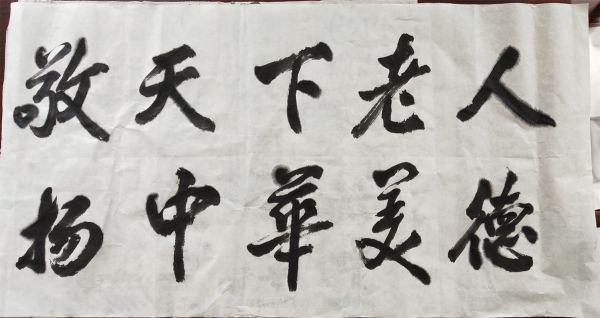 敬天下老人
扬中華美德